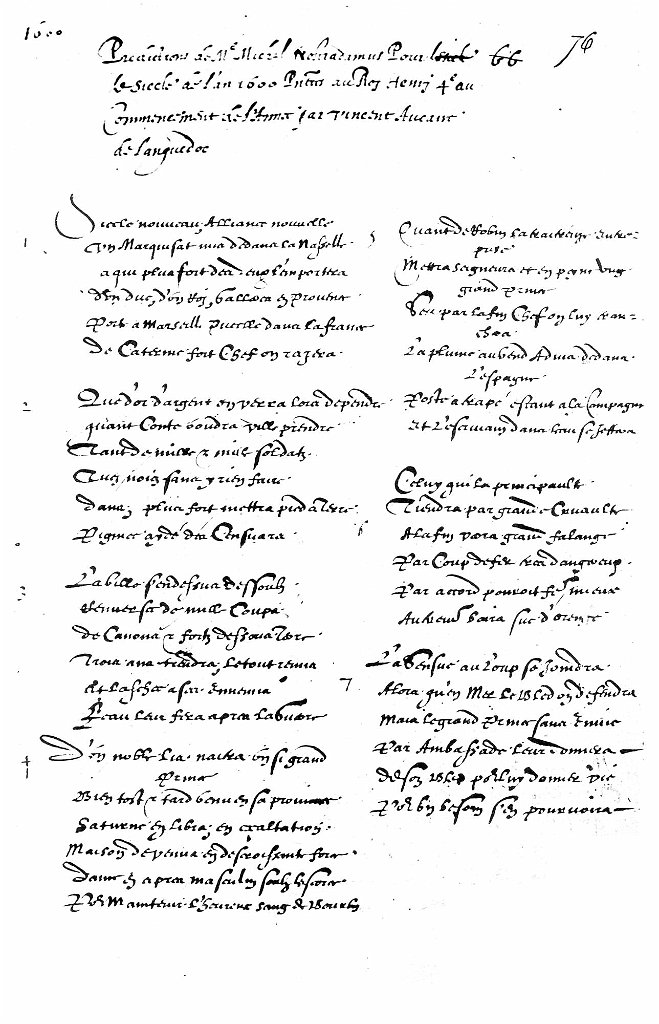 1600
76
Predictions de Mr Michel Nostradamus Pour le siecle 66
le siecle de l'an 1600 au Roy Henry 4e au
Commencement de l'Année par Vincent Aucane
de languedoc
1
Siecle nouveau, Alliance nouvelle
Un Marquisat mis dedans la Nasselle
a qui plus fort des deux l'emportera
d'un duc, d'un Roy, gallera en
Port a Marseill puselle dans la france
de Caterine fort Chef on razera
2
Que d'or d'argent en verra lors dependre
quant Conte voudra ville prendre
Tant de mille & mille soldatz
sans y rien faire
dans, plus fort mettra pied a terre
Pigmee aydé des Censuara
3
La ville sendessus dessoulz
Renverse de mille Coups
de Canons & fortz dessous terre
tiendra le tout en
Et laschee a ses ennemis
L'eau leur fera apres la guere
4
D'un noble lis naitra un si grand
Prince
Bien tost & tard venu en sa province
Saturne en libra en exaltation
Maison de venus en descroissante force
dame en apres masculin soubz lescorce
Por Maintenir l'heureux sang de Bourbon
5
Quant de Robin la traiteuse entre-
prise
Mettra seigneurs et en peyne ung
grand Prince
Seu par la fin Chef on luy tran-
chera
La plume au vend Amia dedans
L'espagne
Poste atrapé estant a la Campagne
et L'escrivain dans leau se jettera
6
Celuy qui la principaulté
Tiendra par grande Cruaulté
A la fin verra grande falange
Par Coup de feu tres dangereux
Par accord pouroit faire mieux
Autrement boira suc d'orenge
7
La Sensue au Loup se joindra
Alors qu'en Mer le Bled on defendra
Mais le grand Prince sans Envie
Par Ambassade leur donnera
de son Bled por luy donner vie
Por un besoin s'en pourvoira